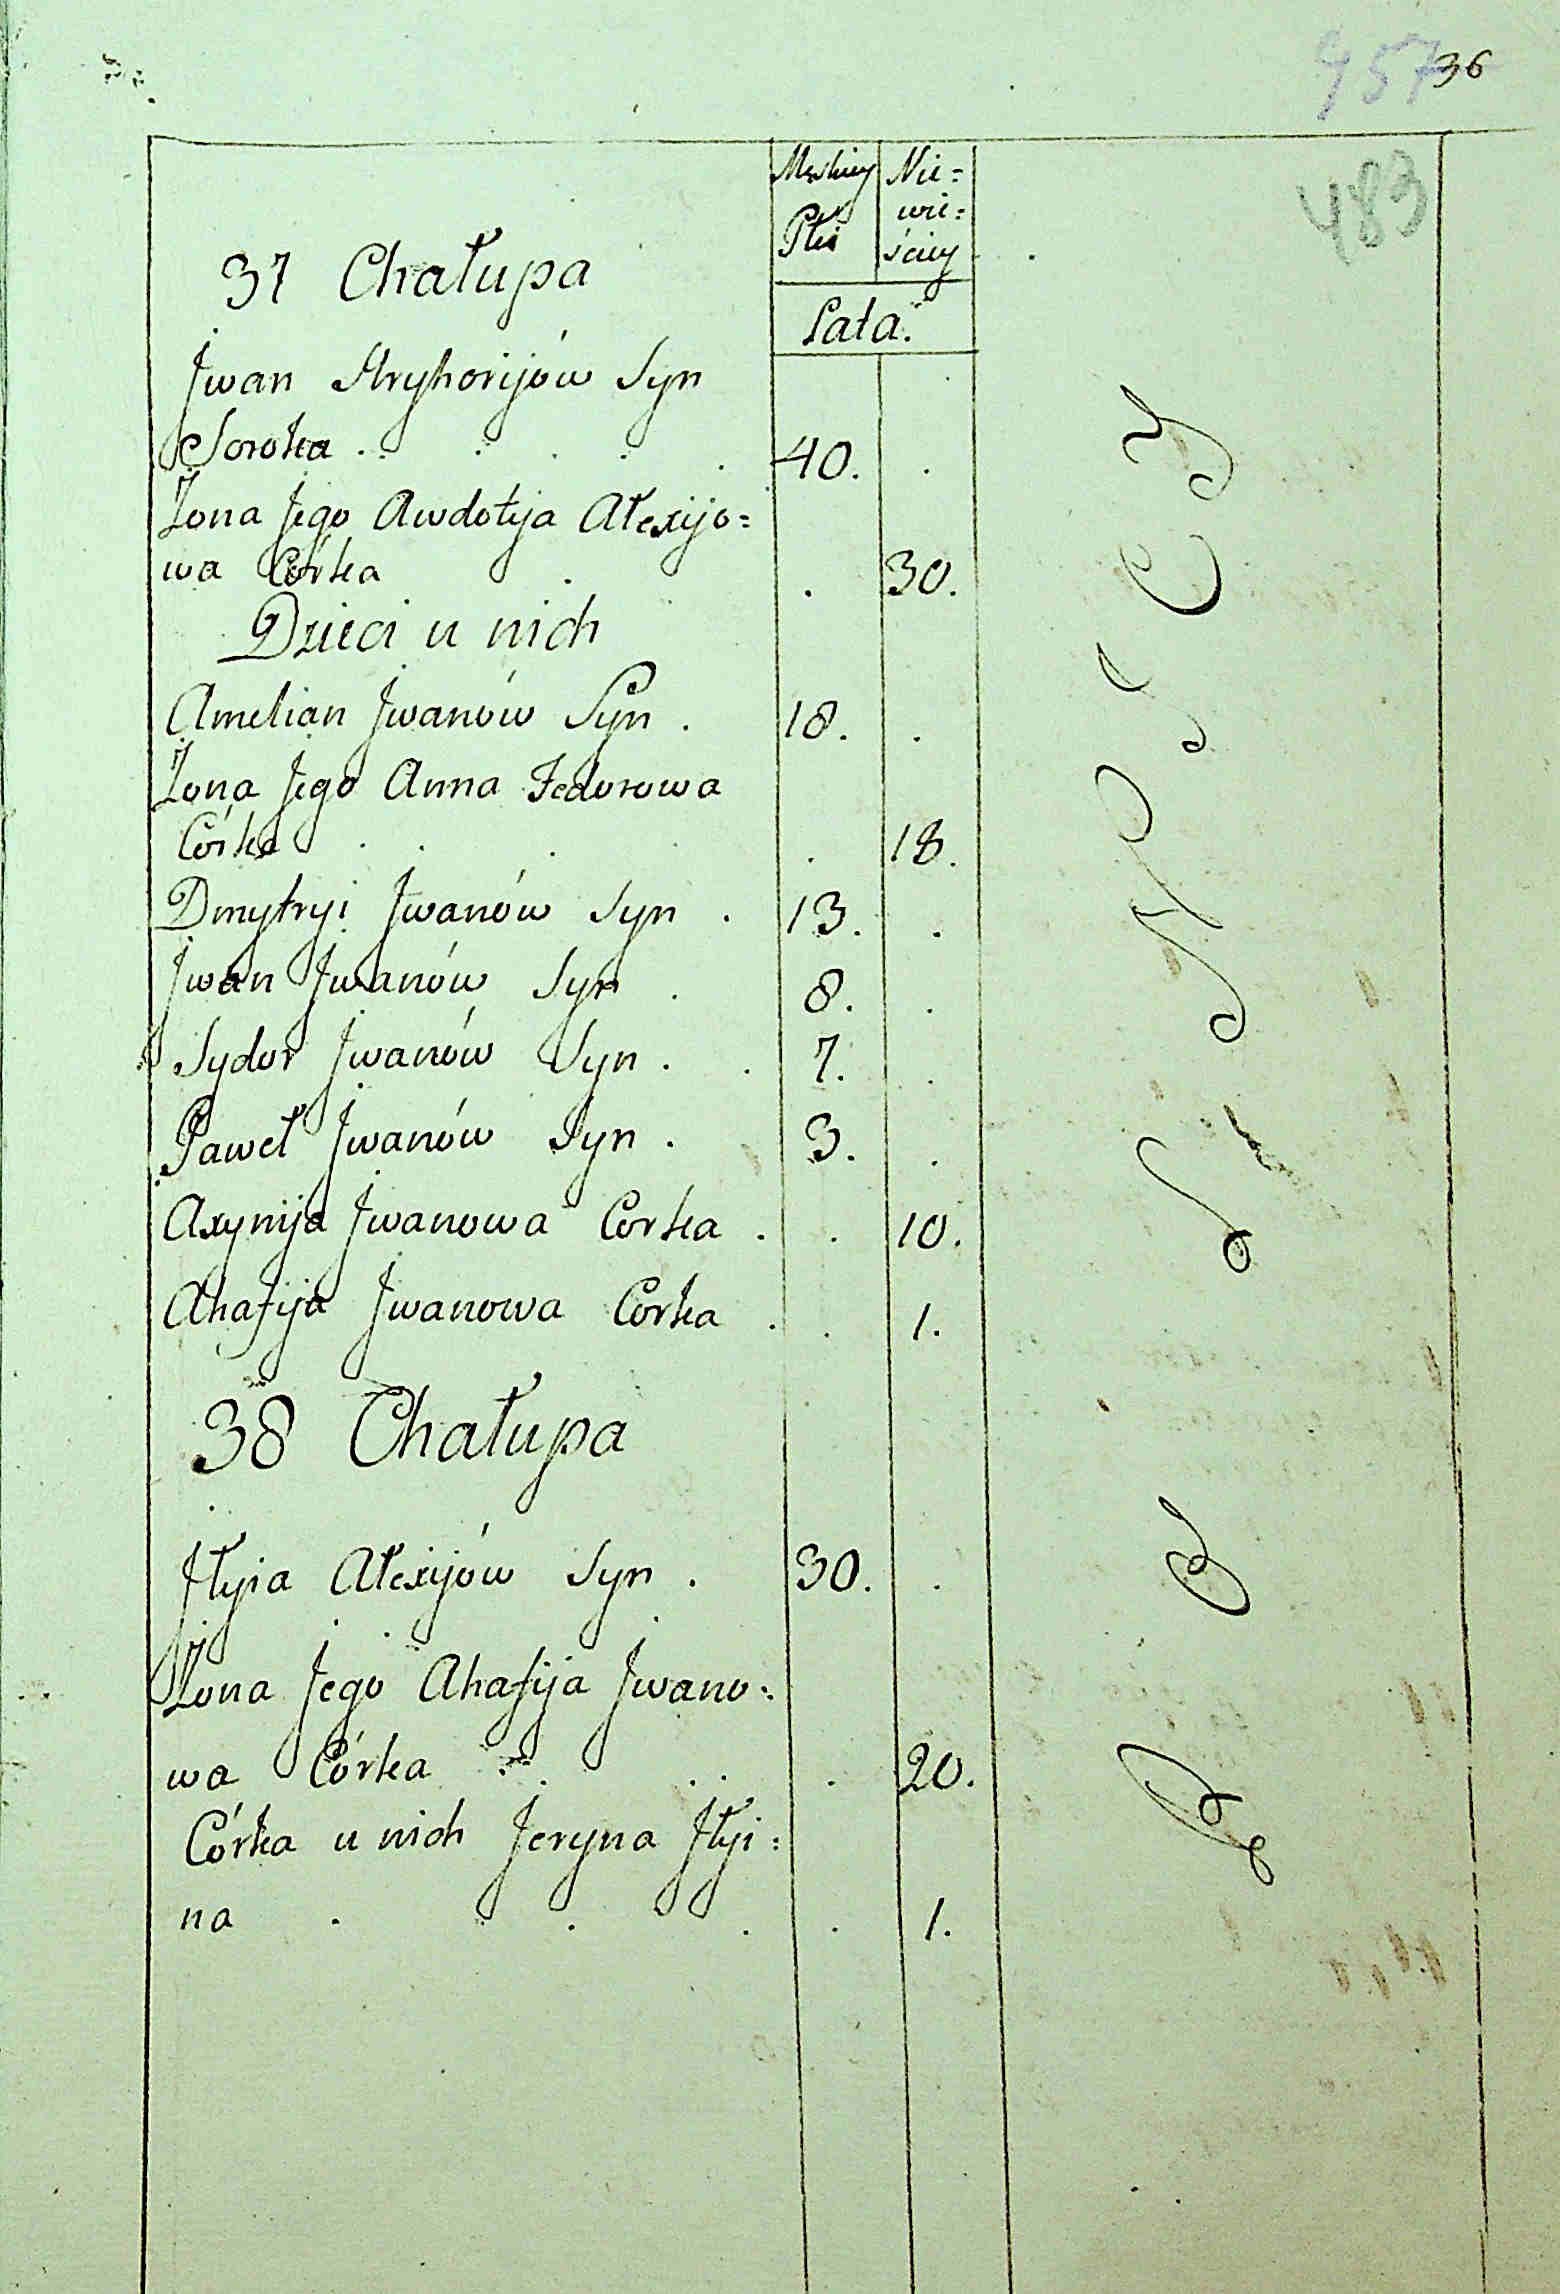 957 36
483
Męskiey Nie=
wie=
Płci ściey
37 Chałupa
Lata.
Jwan Hryhorijów Syn
Soroka . . . . . 40. .
Żona Jego Awdotyja Ałexijo=
wa Córka . . 30.
Dzieci u nich
Amelian Jwanów Syn . 18. .
Żona Jego Anna Fedorowa
Córka . . . . . 18.
Dmytryi Jwanów Syn . 13. .
Jwan Jwanów Syn . 8. .
Sydor Jwanów Syn . . 7. .
Paweł Jwanów Syn . 3. .
Axynija Jwanowa Corka . . 10.
Ahafija Jwanowa Corka . . 1.
38 Chałupa
Jłyia Ałexijów Syn . 30. .
Żona Jego Ahafija Jwano=
wa Córka . . . . . 20.
Córka u nich Jeryna Jłyi=
na . . . . . 1.